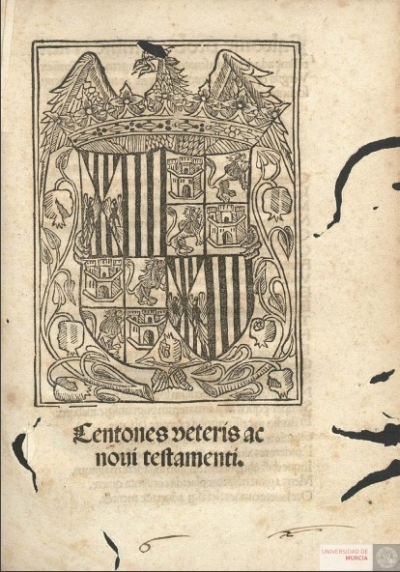 Centones veteris ac
noui testamenti.
6
UNIVERSIDAD DE
MURCIA